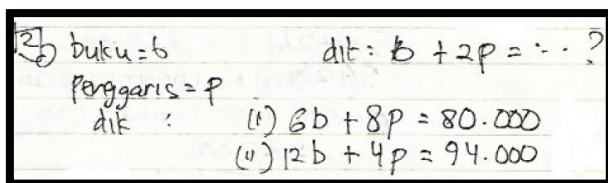 2) buku = b dit : b + 2p = ... ?
Penggaris = p
dik : (i) 6b + 8p = 80.000
(ii) 12b + 4p = 94.000